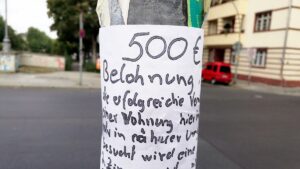 500 €
Belohnung
de erfolgreiche Ver
iner Wohnung hier
in näherer Um
esucht wird eine